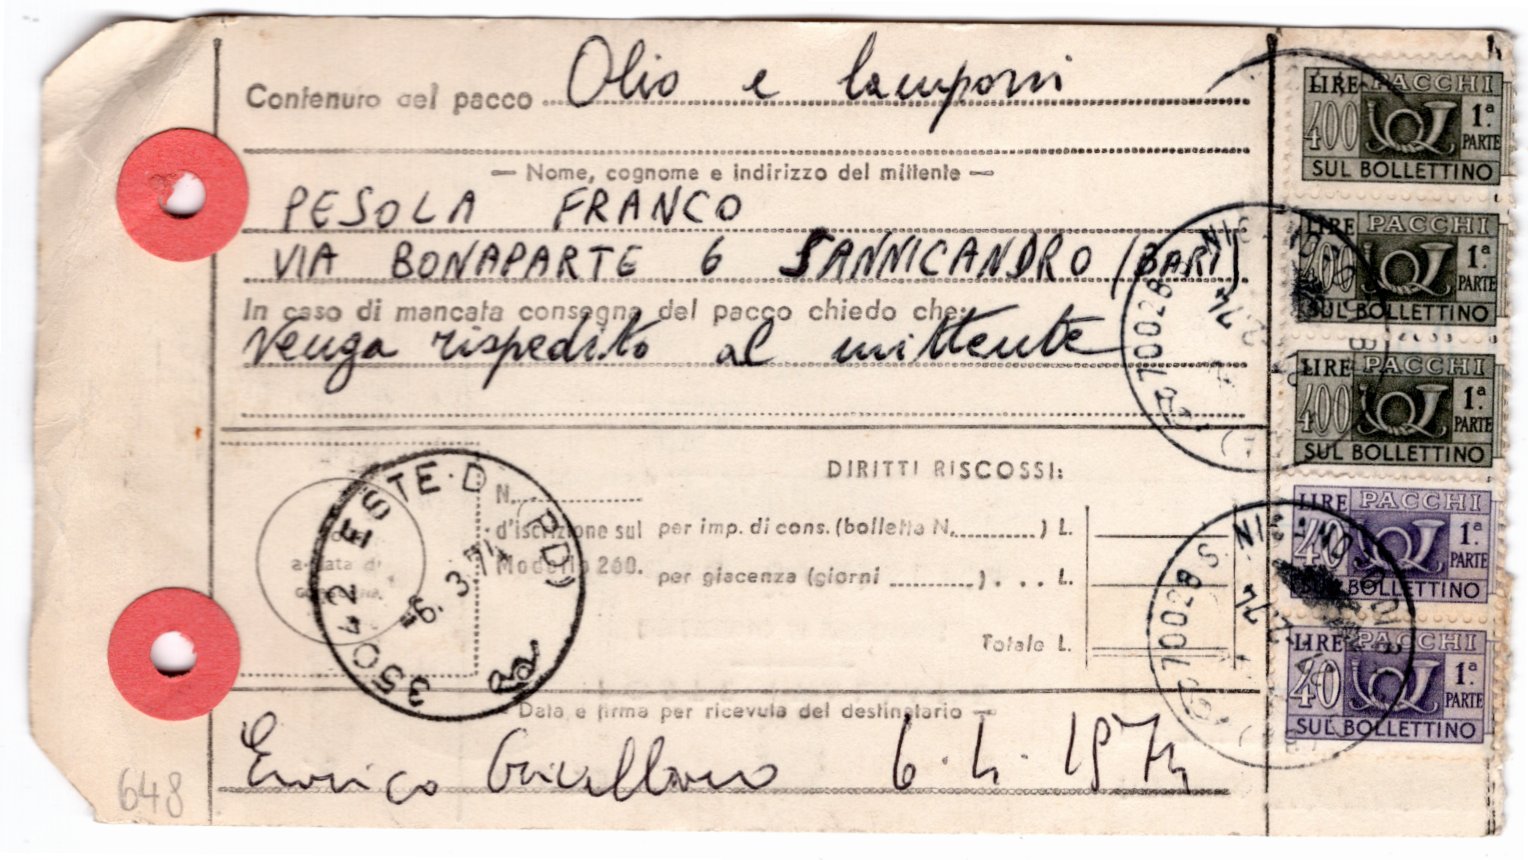 Contenuto del pacco Olio e lamponi
— Nome, cognome e indirizzo del mittente —
PESOLA FRANCO
VIA BONAPARTE 6 SANNICANDRO (BARI)
In caso di mancata consegna del pacco chiedo che:
Venga rispedito al mittente
DIRITTI RISCOSSI:
N.
d'iscrizione sul
Modello 260.
per imp. di cons. (bolletta N. ) L.
per giacenza (giorni ) . . . L.
Totale L.
35042 ESTE·D (PD)
6. 3 74
— Data e firma per ricevuta del destinatario —
Enrico 6.4.1974
648
LIRE PACCHI
400 1ª. PARTE
SUL BOLLETTINO
LIRE PACCHI
400 1ª. PARTE
SUL BOLLETTINO
LIRE PACCHI
400 1ª. PARTE
SUL BOLLETTINO
LIRE PACCHI
40 1ª. PARTE
SUL BOLLETTINO
LIRE PACCHI
40 1ª. PARTE
SUL BOLLETTINO
70028
70028 S.